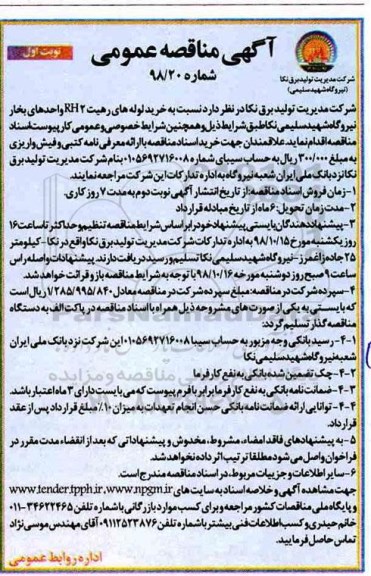 آگهی مناقصه عمومی
نوبت اول
شماره ۹۸/۲۰
شرکت مدیریت تولید برق نکا
(نیروگاه شهید سلیمی)
شرکت مدیریت تولید برق نکا در نظر دارد نسبت به خرید لوله های رهیت RH۲ واحدهای بخار
نیروگاه شهید سلیمی نکا طبق شرایط ذیل و همچنین شرایط خصوصی و عمومی کار پیوست اسناد
مناقصه اقدام نماید. علاقمندان جهت خرید اسناد مناقصه با ارائه معرفی نامه کتبی و فیش واریزی
به مبلغ ۳۰۰/۰۰۰ ریال به حساب سیبای شماره ۰۱۰۵۶۹۲۷۱۶۰۰۸ بنام شرکت مدیریت تولید برق
نکا نزد بانک ملی ایران شعبه نیروگاه به اداره تدارکات این شرکت مراجعه نمایند.
۱- زمان فروش اسناد مناقصه: از تاریخ انتشار آگهی نوبت دوم به مدت ۷ روز کاری.
۲- مدت زمان تحویل: ۶ ماه از تاریخ مبادله قرارداد
۳- پیشنهاددهندگان بایستی پیشنهاد خود را بر اساس شرایط مناقصه تنظیم و حداکثر تا ساعت ۱۶
روز یکشنبه مورخ ۹۸/۱۰/۱۵ به اداره تدارکات شرکت مدیریت تولید برق نکا واقع در نکا - کیلومتر
۲۵ جاده زاغمرز - نیروگاه شهید سلیمی نکا تسلیم و رسید دریافت دارند. پیشنهادات واصله راس
ساعت ۹ صبح روز دوشنبه مورخه ۹۸/۱۰/۱۶ با توجه به شرایط مناقصه باز و قرائت خواهد شد.
۴- سپرده شرکت در مناقصه: مبلغ سپرده شرکت در مناقصه معادل ۱/۲۸۵/۹۹۵/۸۴۰ ریال است
که بایستی به یکی از صورت های مشروحه ذیل همراه با اسناد مناقصه در پاکت الف به دستگاه
مناقصه گذار تسلیم گردد:
۴-۱- رسید بانکی وجه مزبور به حساب سیبا ۰۱۰۵۶۹۲۷۱۶۰۰۸ این شرکت نزد بانک ملی ایران
شعبه نیروگاه شهید سلیمی نکا
۴-۲- چک تضمین شده بانکی به نفع کارفرما
۴-۳- ضمانت نامه بانکی به نفع کارفرما برابر با فرم پیوست که می بایست دارای ۳ ماه اعتبار باشد.
۴-۴- توانایی ارائه ضمانت نامه بانکی حسن انجام تعهدات به میزان ۱۰٪ مبلغ قرارداد پس از عقد
قرارداد.
۵- به پیشنهادهای فاقد امضاء، مشروط، مخدوش و پیشنهاداتی که بعد از انقضاء مدت مقرر در
فراخوان واصل می شود مطلقا ترتیب اثر داده نخواهد شد.
۶- سایر اطلاعات و جزییات مربوط، در اسناد مناقصه مندرج است.
جهت مشاهده آگهی و خلاصه اسناد به سایت های www.tender.tpph.ir، www.npgm.ir
و پایگاه ملی مناقصات کشور مراجعه و برای کسب موارد بازرگانی با شماره تلفن ۳۴۶۲۲۴۶۵-۰۱۱
خانم حیدری و کسب اطلاعات فنی بیشتر با شماره تلفن ۰۹۱۱۲۵۲۳۸۷۶ آقای مهندس موسی نژاد
تماس حاصل فرمایید.
اداره روابط عمومی